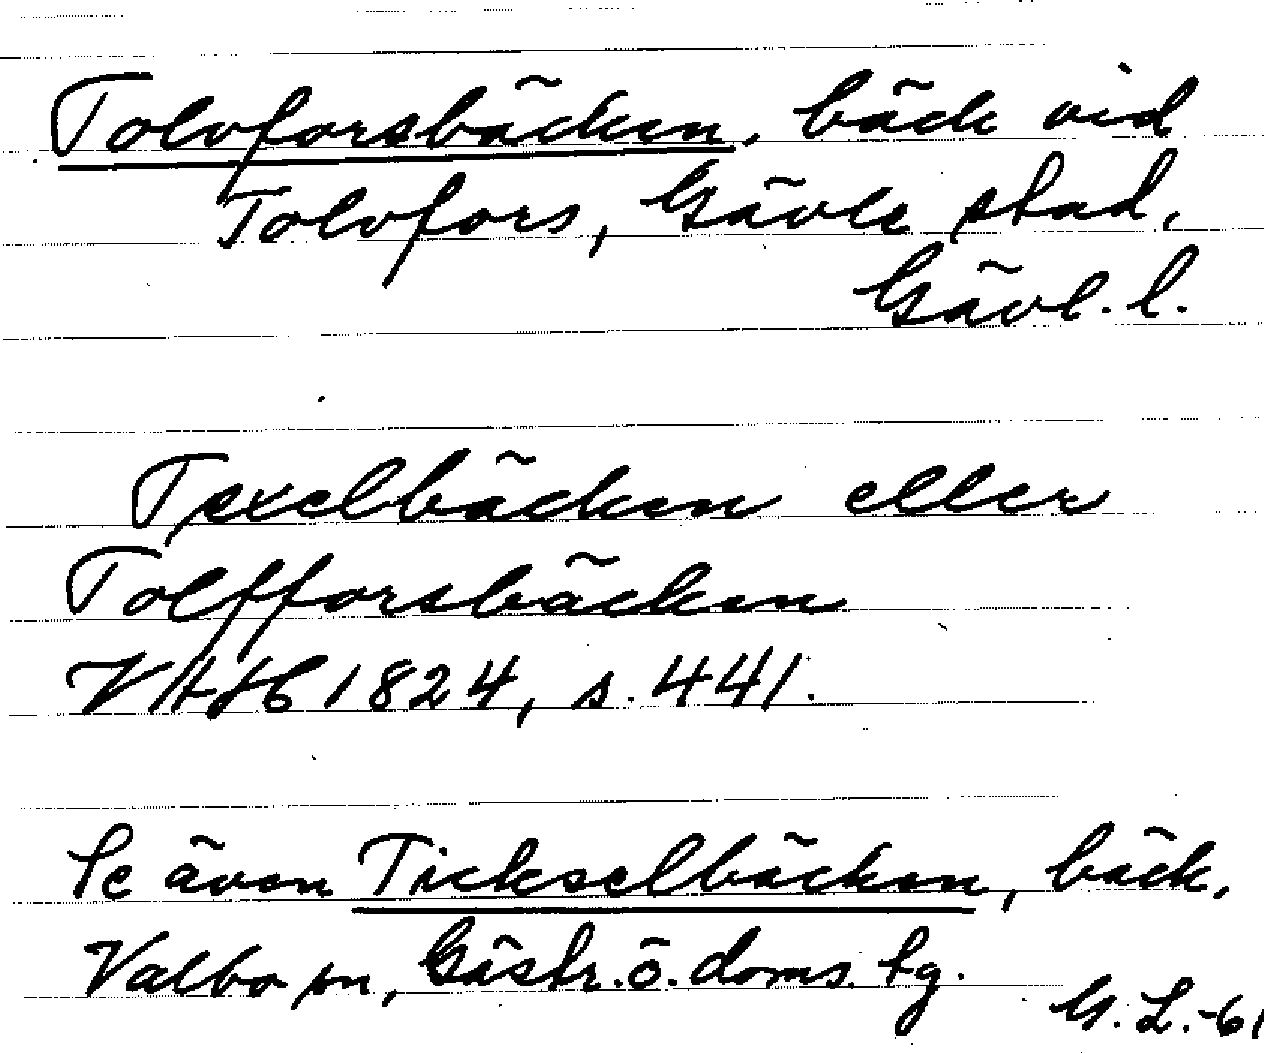 Tolvforsbäcken, bäck vid
Tolvfors, Gävle stad,
Gävl. l.
Texelbäcken eller
Tolfforsbäcken
VAH 1824, s. 441.
Se även Tickselbäcken, bäck,
Valbo sn, Gästr. ö. doms. tg.
G. L.-61